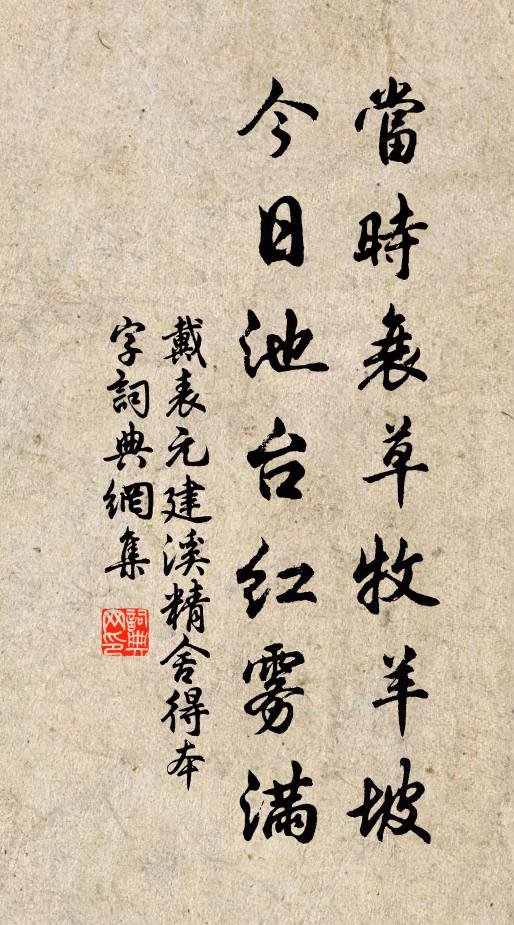 當時衰草牧羊坡
今日池台红雾满
戴表元建溪精舍得本
字詞典網集
詞典
网印